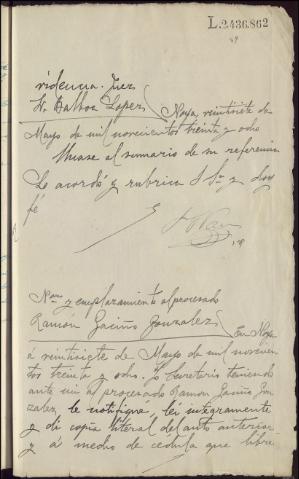 L.2436.862
Providencia-Juez
Sr. Balboa Lopez
Noya, veintisiete de
Mayo de mil novecientos treinta y ocho
Unase al sumario de su referencia
Lo acordó y rubrica S Sª y doy
fé
Non y emplazamiento al procesado
Ramón Gaciño Gonzalez
En Noya
á veintisiete de Mayo de mil novecien
tos treinta y ocho. Yo Secretario teniendo
ante mi al procesado Ramon Gaciño Gon
zalez, le notifiqué, leí integramente
y di copia literal del auto anterior,
y á medio de cedula que libré